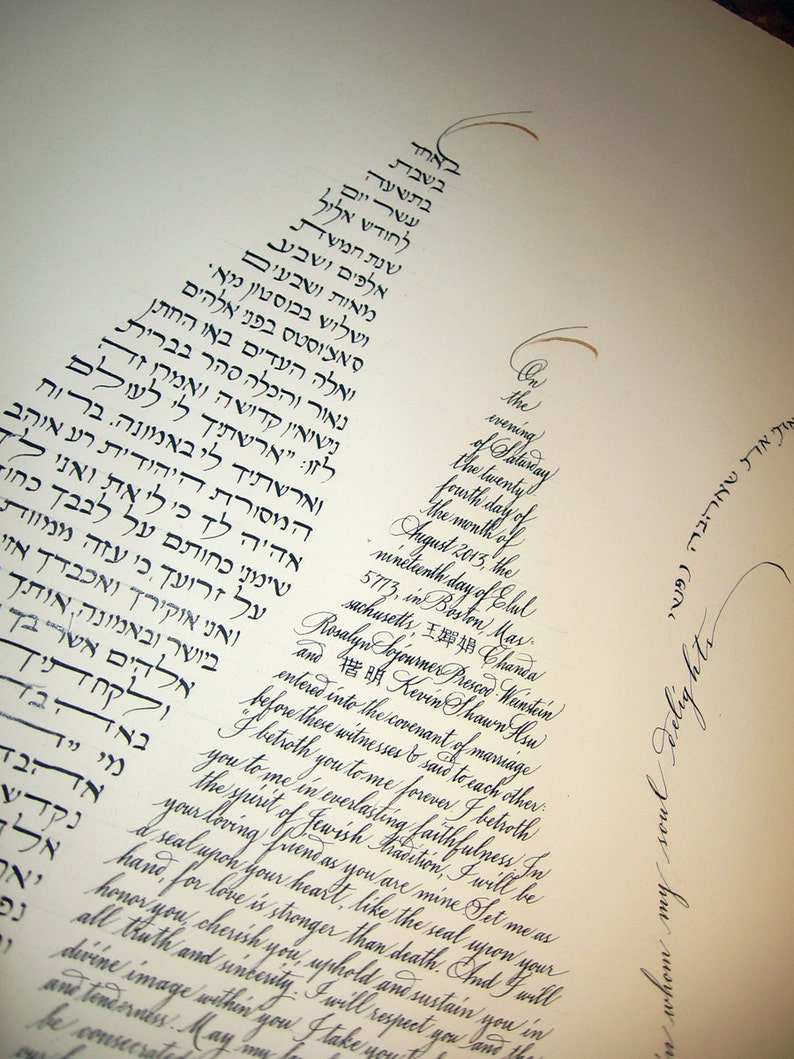 באחד
בשבת
בתשעה
עשר יום
לחודש אליל
שנת חמשת
אלפים ושבע
מאות ושבעים
ושליש בבוסטון מיא.
סאצ'וסטס בפני אלהים
ואלה העדים באו החתן
נאור והכלה סהר בברית
נישיאין קדושה ואמרו זה
לזו: "ארשתיך לי לעולם
וארשתיך לי באמונה. ברוח
המסורת היהודית רע אוהב
אהיה לך כי לי את ואני
שימני כחותם על לבבך
על זרועך, כי עזה ממוות
ואני אוקירך ואכבדך
ביושר ובאמונה, אותך
אלהים אשר בך
ולקחתיך
באהבה
מי
אהבה
On
the
evening
of Saturday
the twenty
fourth day of
the month of
August 2013, the
nineteenth day of Elul
5773, in Boston Mas-
sachusetts, 王嬋娟 Chanda
Rosalyn Sojourner Prescod-Weinstein
and 楷明 Kevin Shawn Hsu
entered into the covenant of marriage
before these witnesses & said to each other:
"I betroth you to me forever I betroth
you to me in everlasting faithfulness In
the spirit of Jewish tradition, I will be
your loving friend as you are mine Set me as
a seal upon your heart, like the seal upon your
hand, for love is stronger than death. And I will
honor you, cherish you, uphold and sustain you in
all truth and sincerity. I will respect you and the
divine image within you I take you
and tenderness. May my
be consecrated
שאהבה נפשי
in whom my soul delights